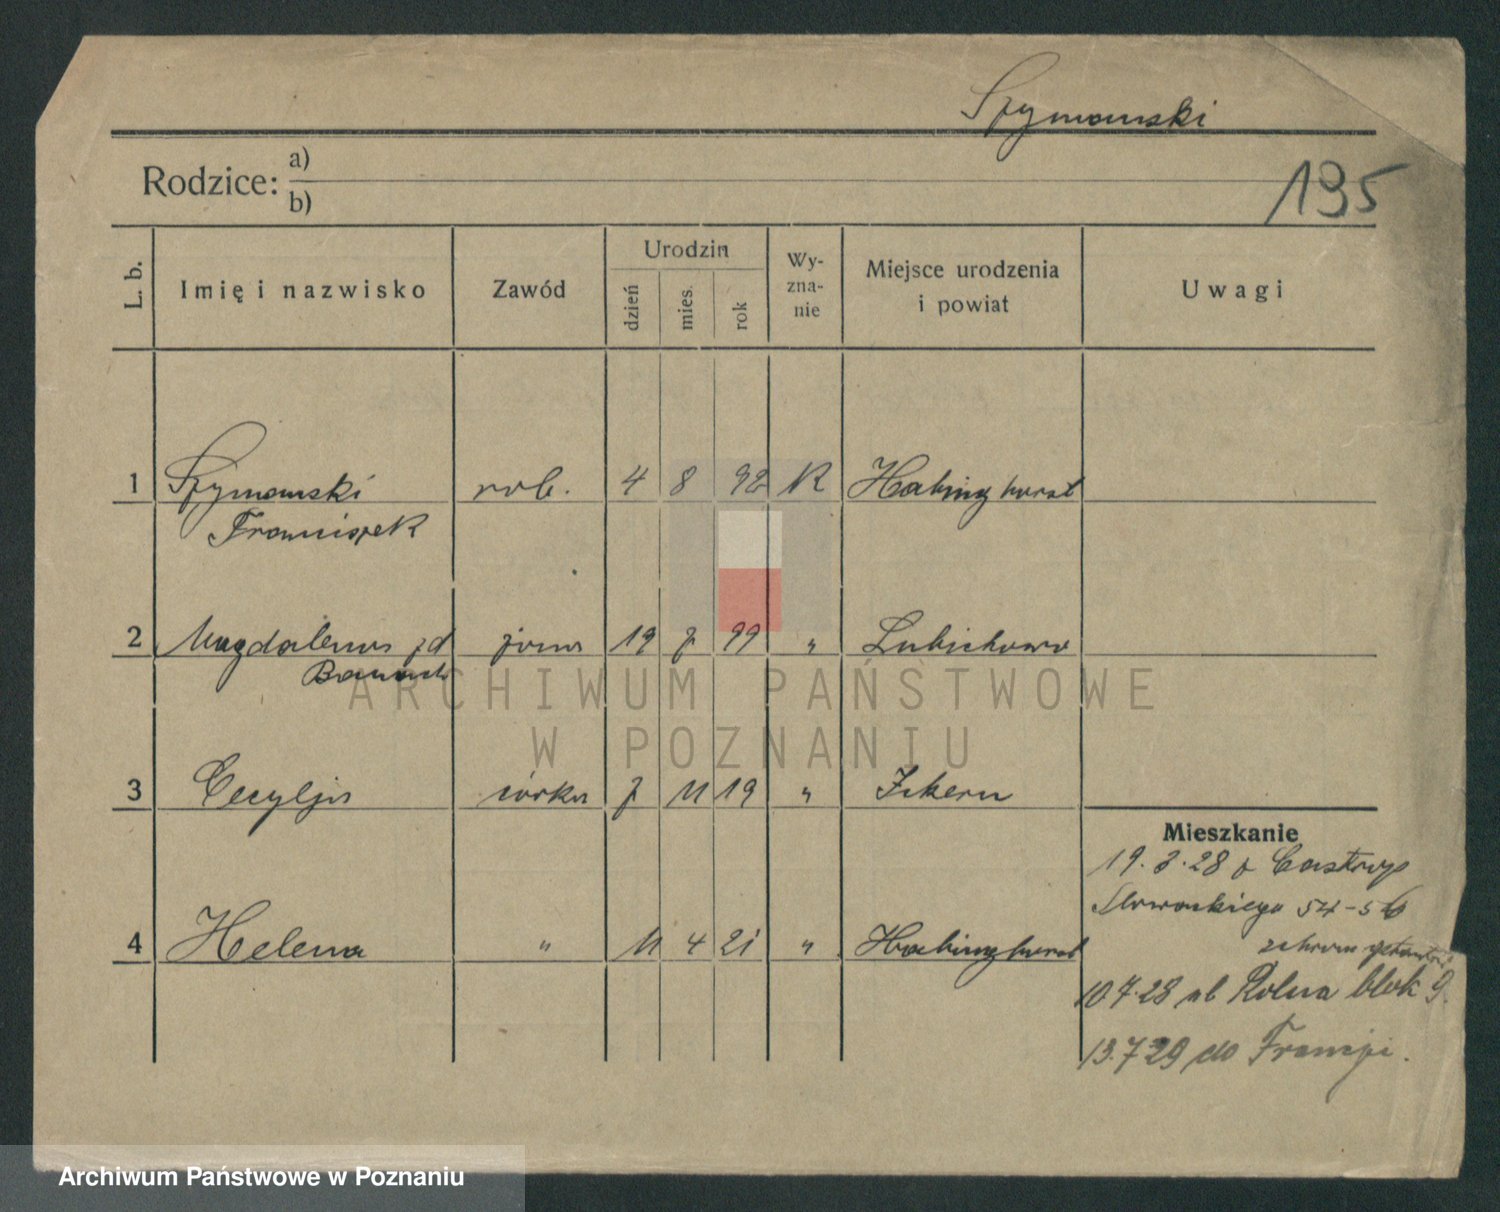 Szymanski
Rodzice: a)
b)
195
L. b.
Imię i nazwisko
Zawód
Urodzin
dzień
mies.
rok
Wy-
zna-
nie
Miejsce urodzenia
i powiat
Uwagi
1 Szymanski rob. 4 8 92 K Habinghorst
Franciszek
2 Magdalena zd żona 19 7 99 " Lubichowo
Banach
3 Cecylja córka 7 11 19 " Ickern
Mieszkanie
19.3.28 z Castrop
Słowackiego 54-56
4 Helena " 11 4 21 " Habinghorst
10.7.28 ul Rolna blok 9.
13.7 29 do Francji.
ARCHIWUM PAŃSTWOWE
W POZNANIU
Archiwum Państwowe w Poznaniu